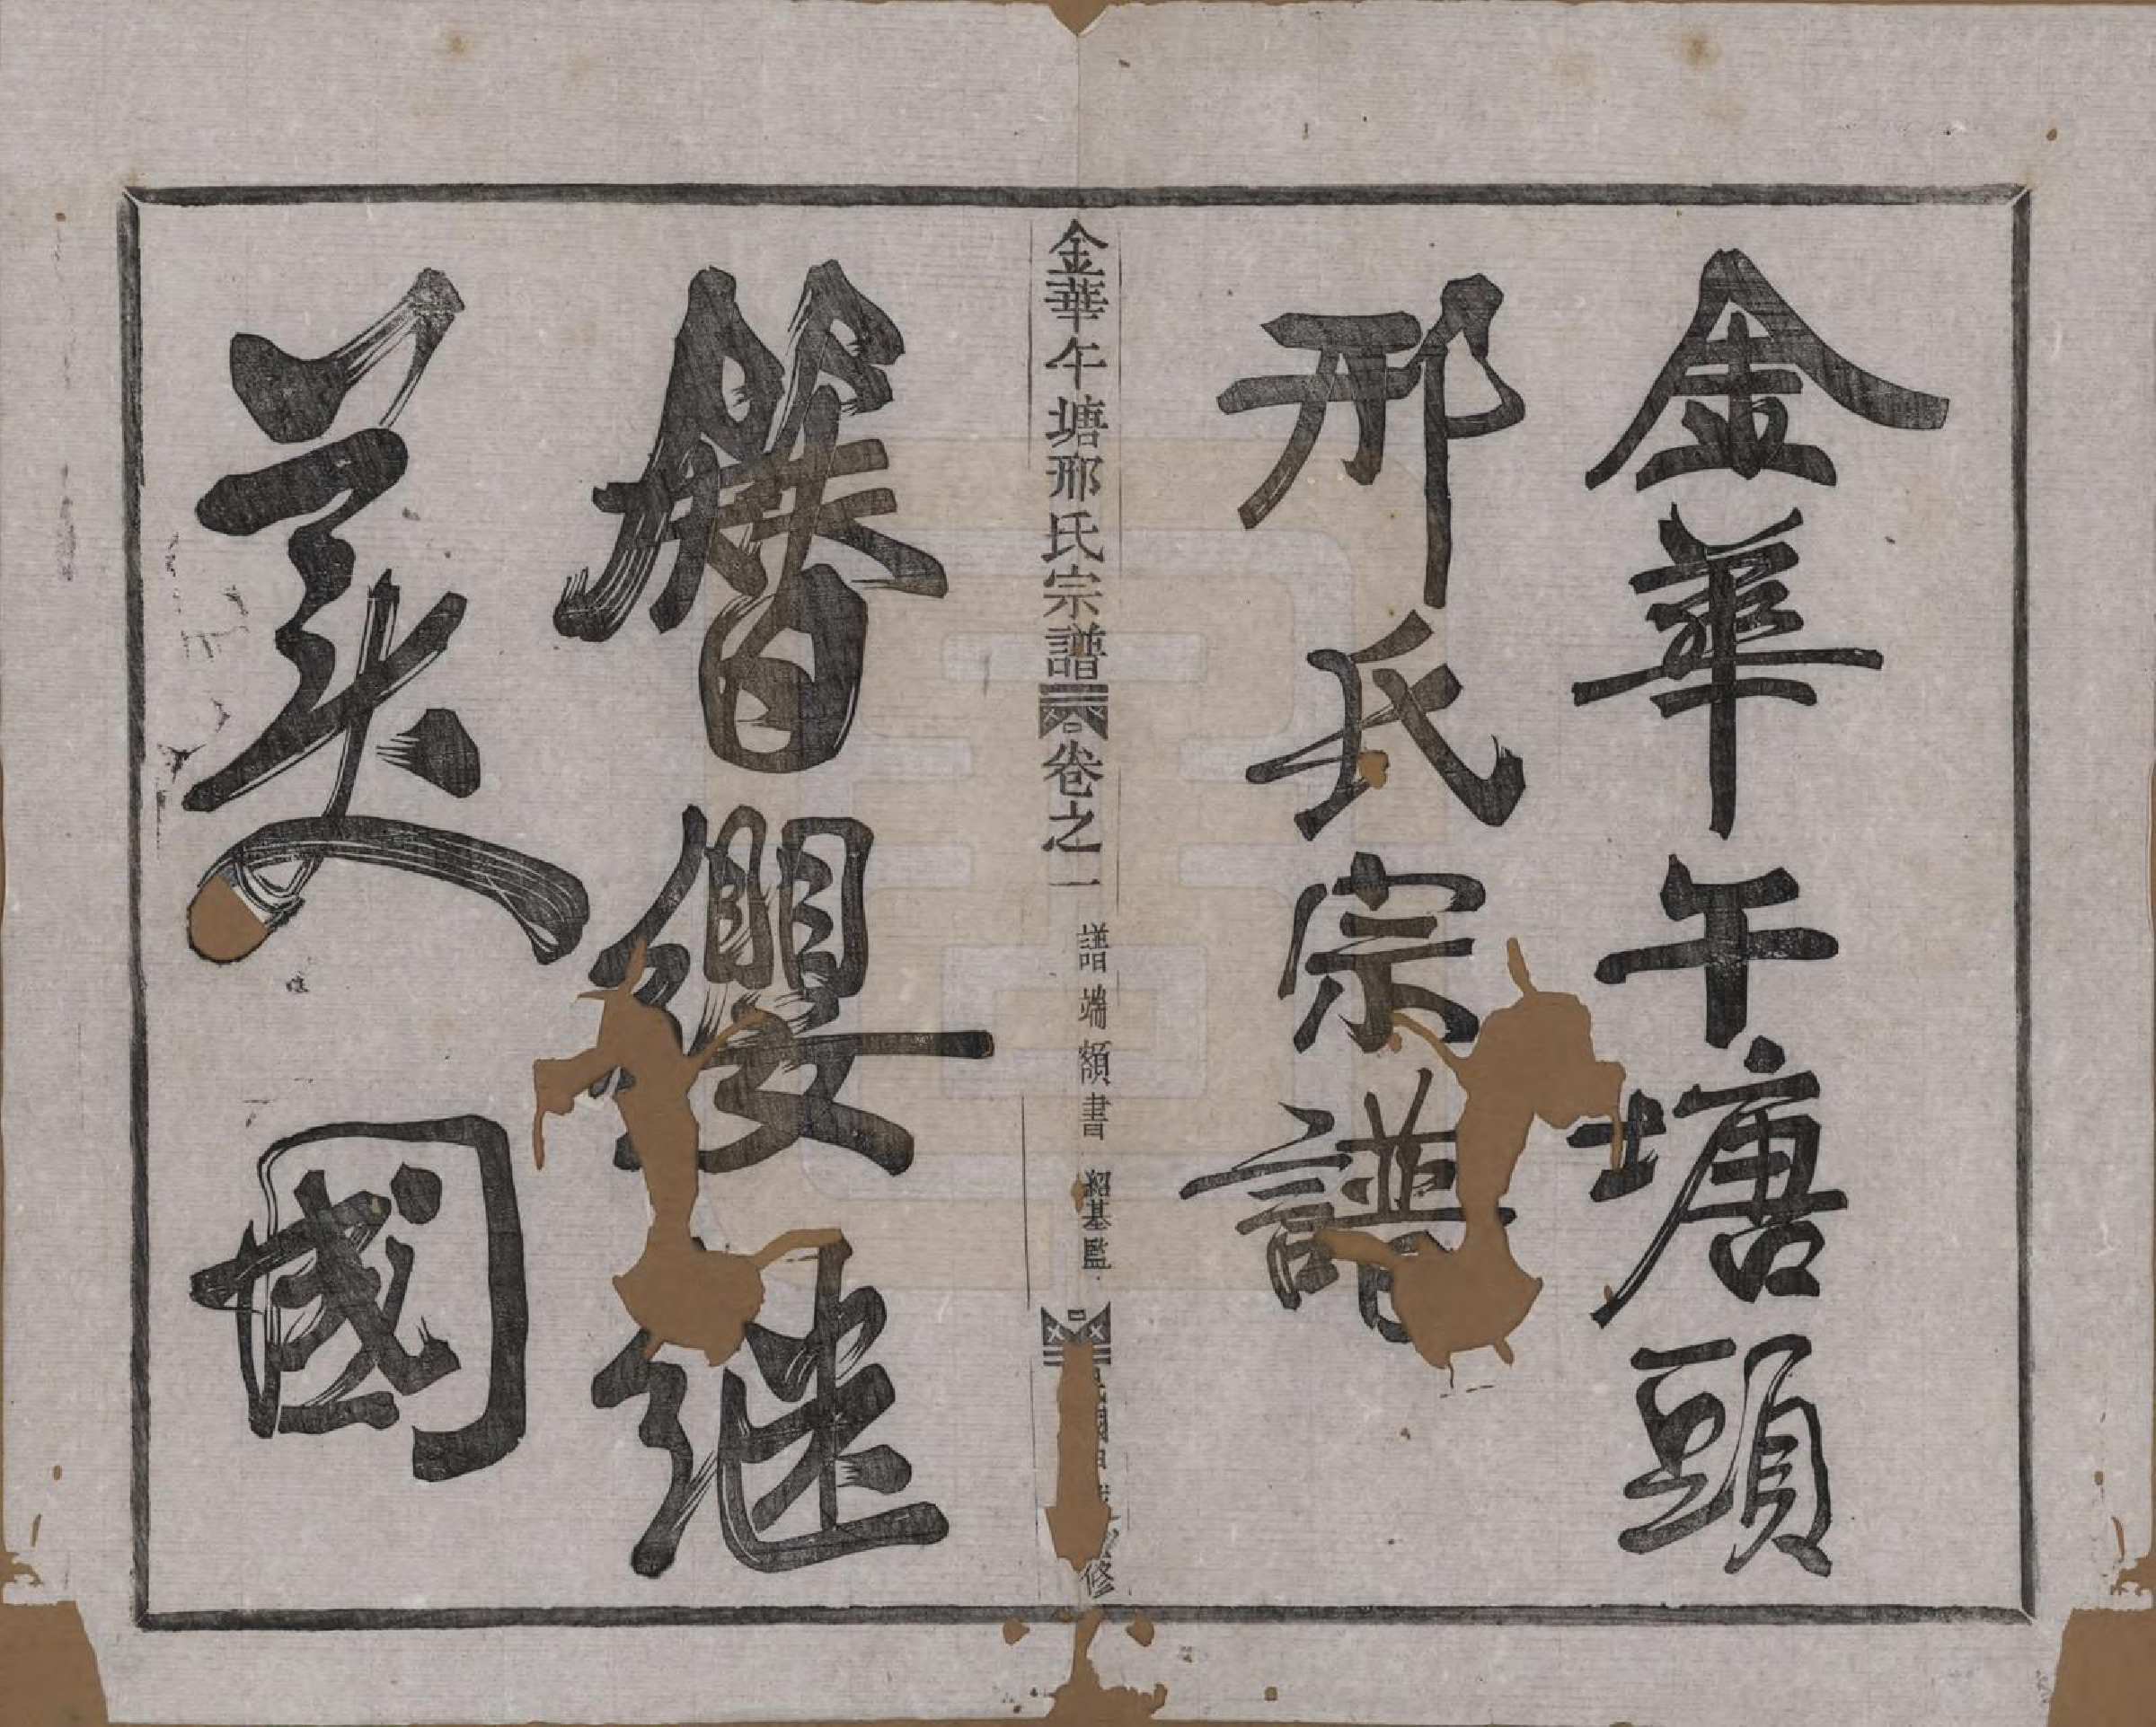 金華午塘頭
邢氏宗譜
金華午塘邢氏宗譜 卷之一 譜端額書 紹基監 國 修
簪纓继
美國